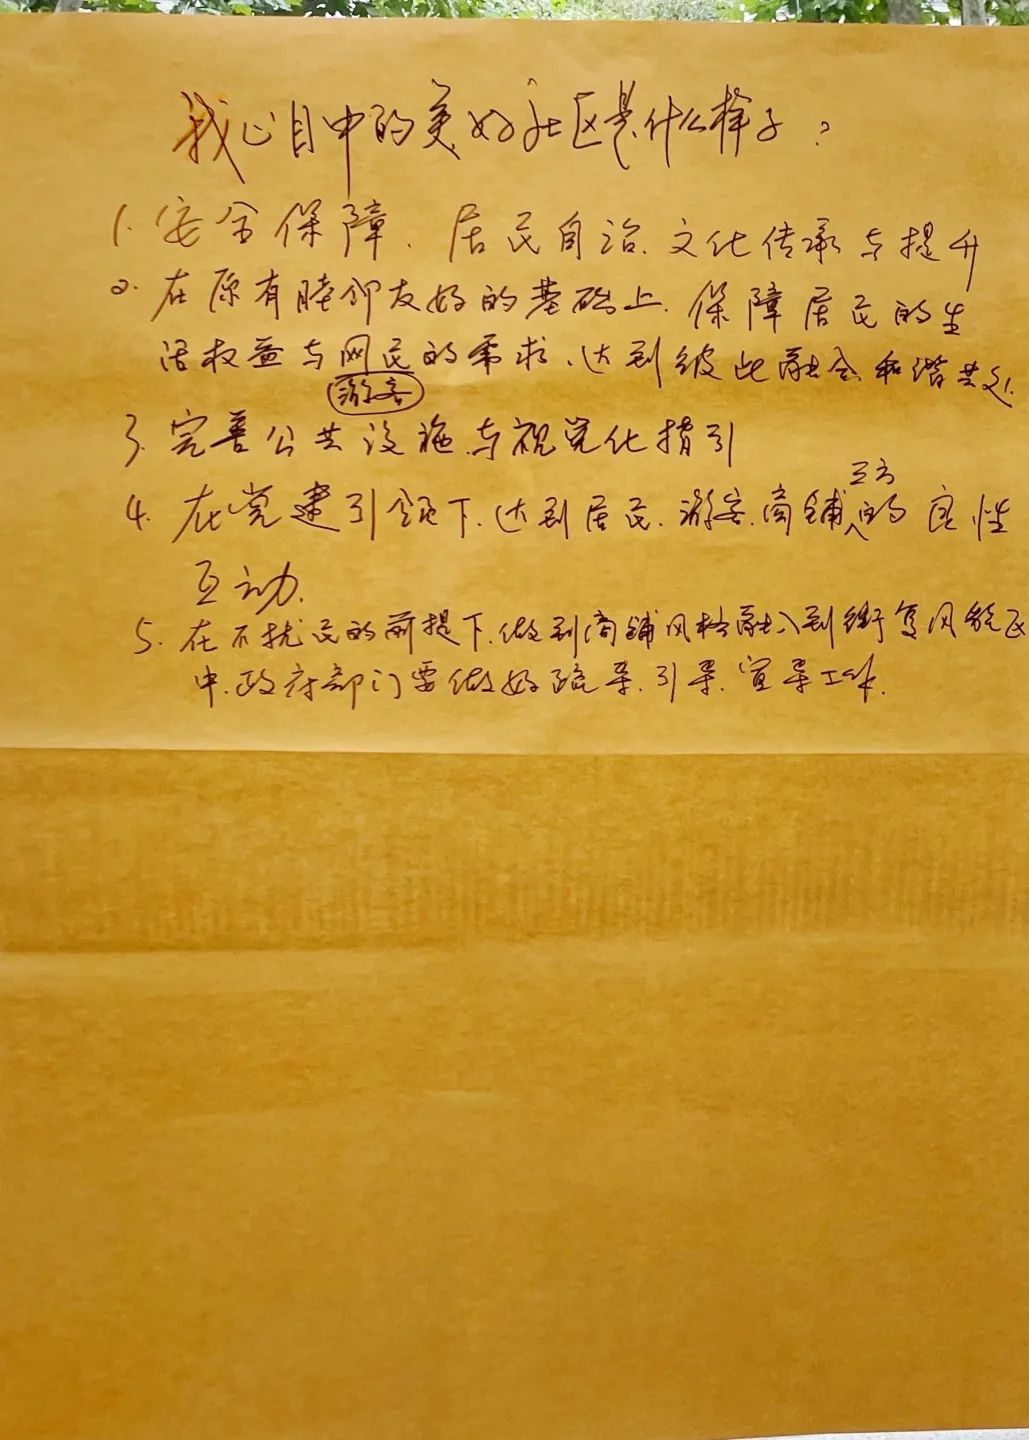 我心目中的美好社区是什么样子?
1. 安全保障、居民自治、文化传承与提升
2. 在原有睦邻友好的基础上、保障居民的生
活权益与网民的需求、达到彼此融合和谐共处.
游客
3. 完善公共设施与视觉化指引
三方
4. 在党建引领下、达到居民、游客、商铺的良性
互动.
5. 在不扰民的前提下、做到商铺风格融入到街区风貌
中、政府部门要做好疏导、引导、宣导工作.